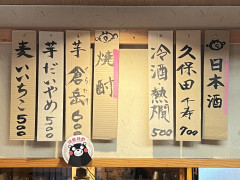 日本酒
久保田 千寿 900
冷酒 熱燗 500
焼酎
芋 倉岳 600
芋 だいやめ 500
麦 いいちこ 500